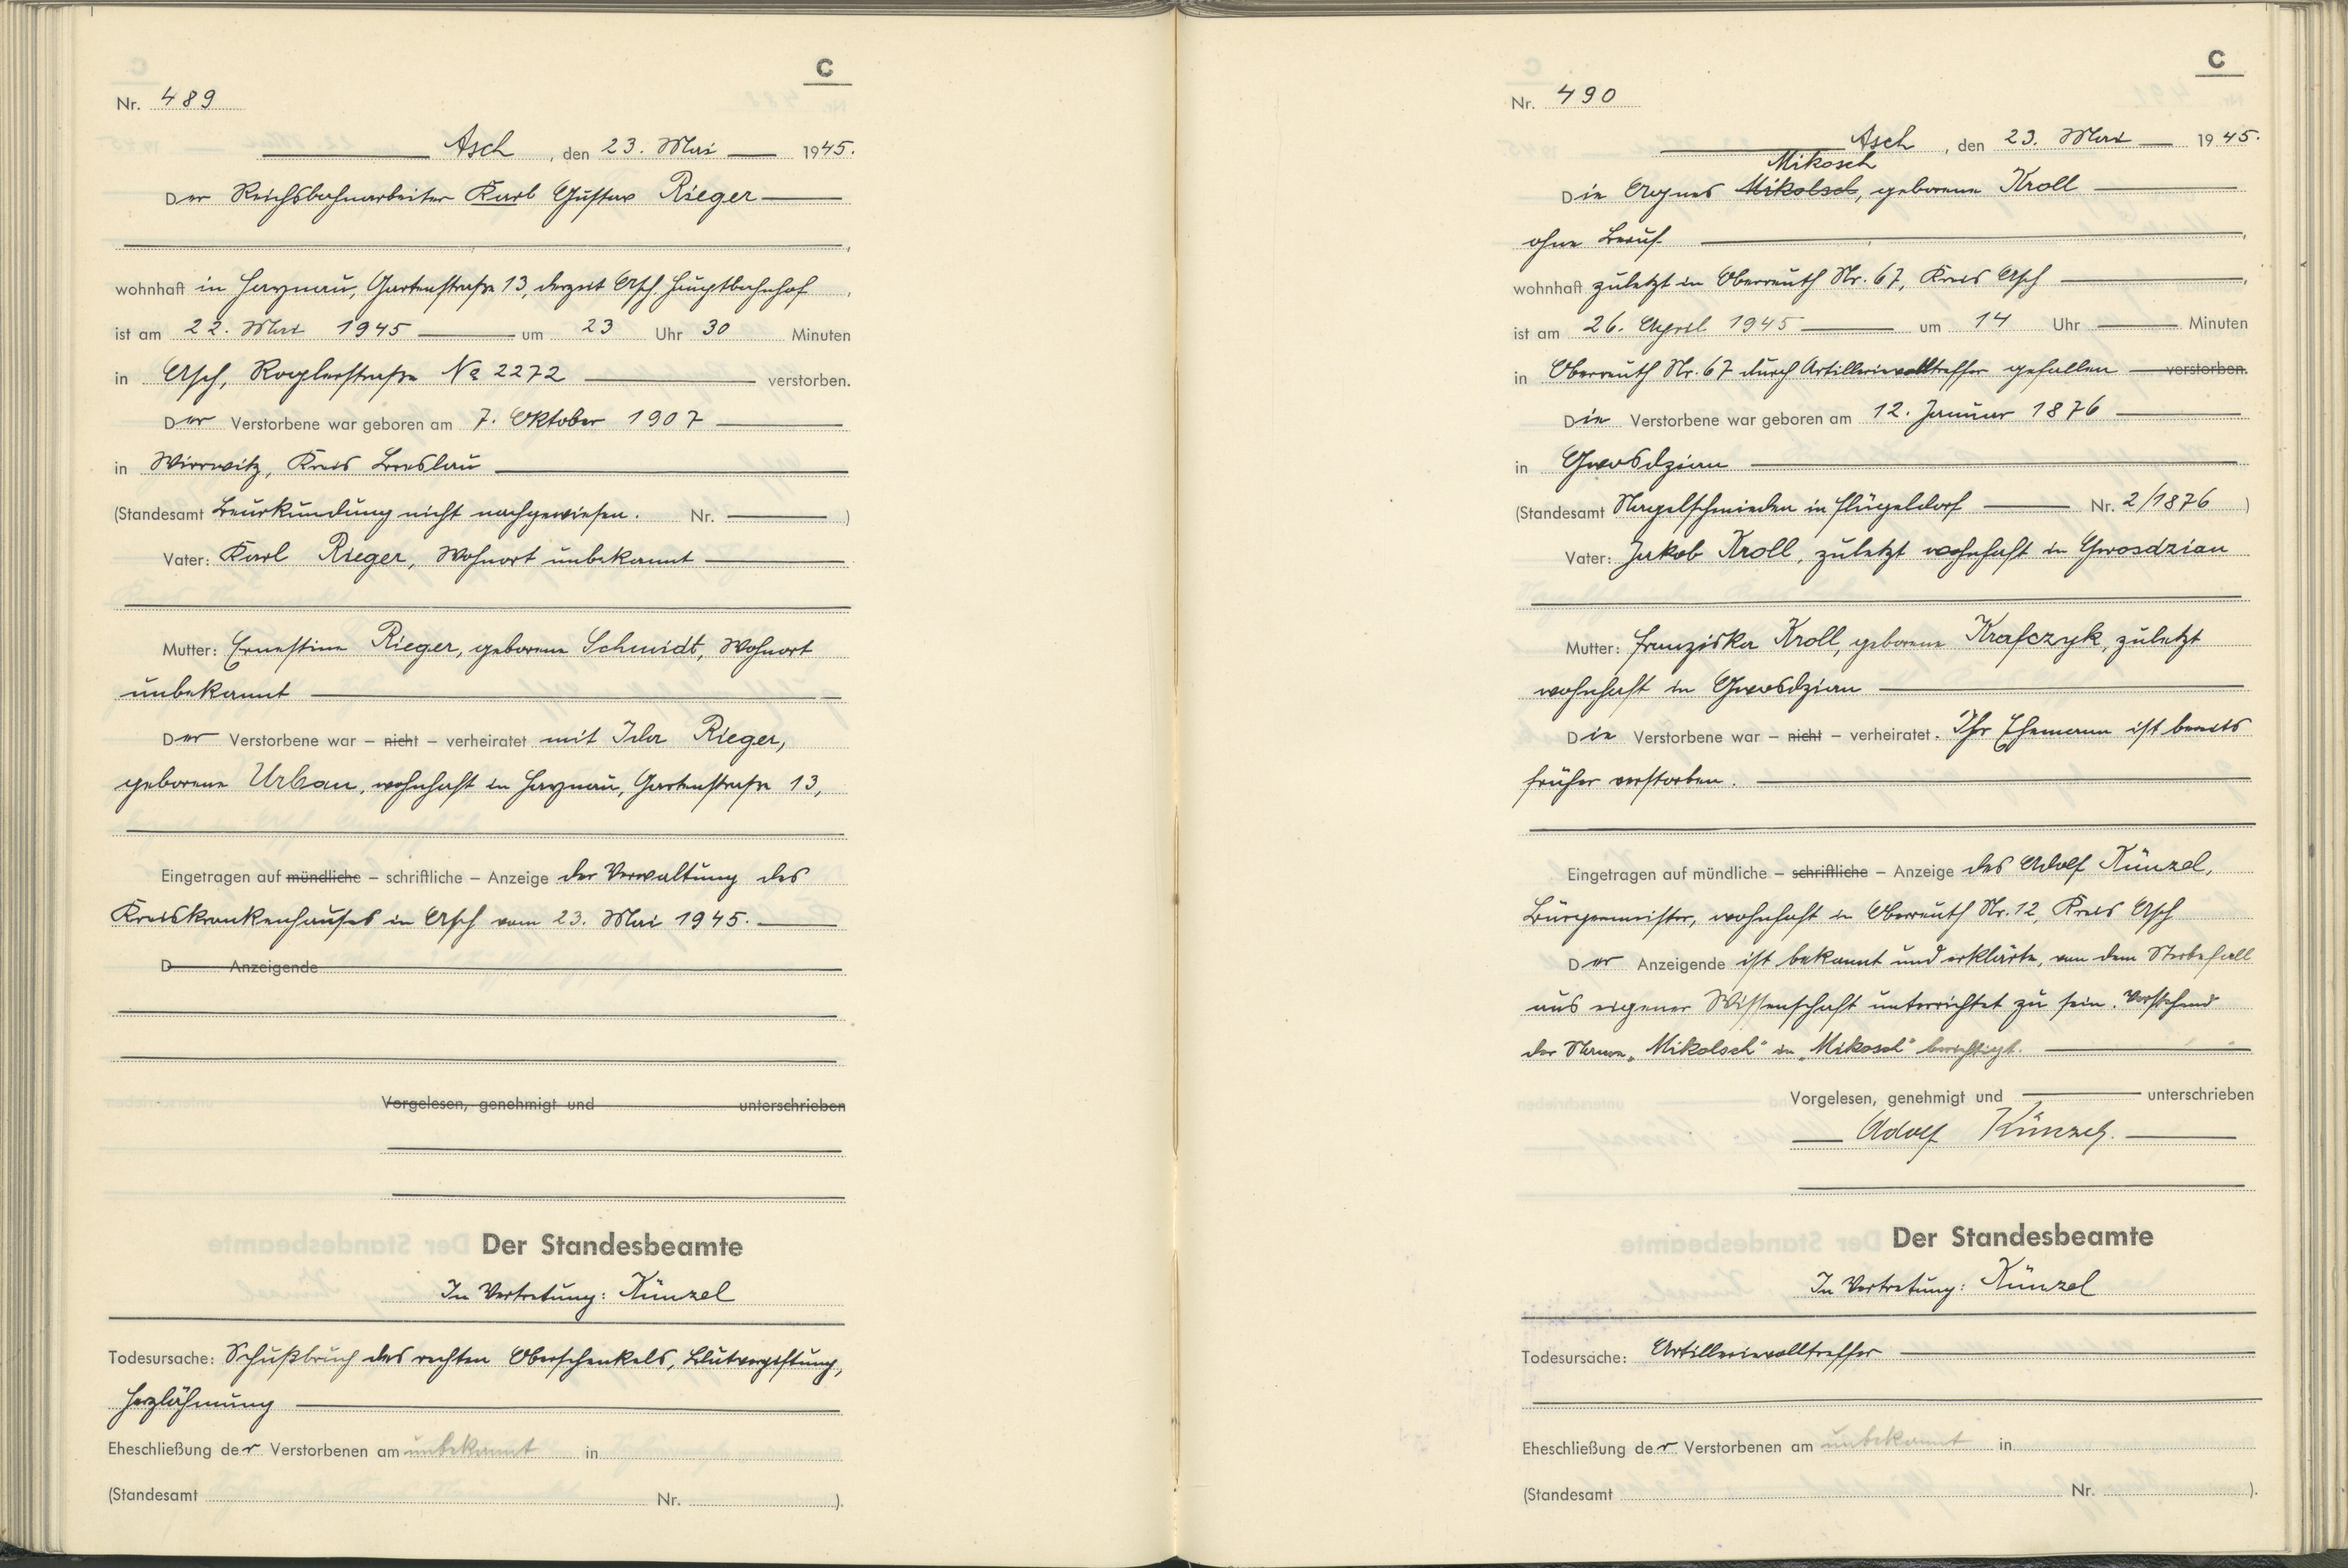 C
Nr. 489
Asch, den 23. Mai 1945.
Der Reichsbahnarbeiter Karl Gustav Rieger
wohnhaft in Haynau, Gartenstraße 13, derzeit Asch Hauptbahnhof,
ist am 22. Mai 1945 um 23 Uhr 30 Minuten
in Asch, Roglerstraße No 2272 verstorben.
Der Verstorbene war geboren am 7. Oktober 1907
in Wirrwitz, Kreis Breslau
(Standesamt Beurkundung nicht nachgewiesen. Nr. )
Vater: Karl Rieger, Wohnort unbekannt
Mutter: Ernestine Rieger, geborene Schmidt, Wohnort
unbekannt
Der Verstorbene war – nicht – verheiratet mit Ida Rieger,
geborene Urban, wohnhaft in Haynau, Gartenstraße 13,
Eingetragen auf mündliche – schriftliche – Anzeige der Verwaltung des
Kreiskrankenhauses in Asch vom 23. Mai 1945.
D Anzeigende
Vorgelesen, genehmigt und unterschrieben
Der Standesbeamte
In Vertretung: Künzel
Todesursache: Schußbruch des rechten Oberschenkels, Blutvergiftung,
Herzlähmung
Eheschließung der Verstorbenen am unbekannt in
(Standesamt Nr. ).
C
Nr. 490
Asch, den 23. Mai 1945.
Mikosch
Die Agnes Mikolsch, geborene Kroll
ohne Beruf
wohnhaft zuletzt in Oberreuth Nr. 67, Kreis Asch,
ist am 26. April 1945 um 14 Uhr Minuten
in Oberreuth Nr. 67 durch Artillerievolltreffer gefallen verstorben.
Die Verstorbene war geboren am 12. Januar 1876
in Gwosdzian
(Standesamt Nagelschmieden in Flügeldorf Nr. 2/1876 )
Vater: Jakob Kroll, zuletzt wohnhaft in Gwosdzian
Mutter: Franziska Kroll, geborene Krafczyk, zuletzt
wohnhaft in Gwosdzian
Die Verstorbene war – nicht – verheiratet. Ihr Ehemann ist bereits
früher verstorben.
Eingetragen auf mündliche – schriftliche – Anzeige des Adolf Künzel,
Bürgermeister, wohnhaft in Oberreuth Nr. 12, Kreis Asch
Der Anzeigende ist bekannt und erklärte, von dem Sterbefall
aus eigener Wissenschaft unterrichtet zu sein. Vorstehend
der Name „Mikolsch" in „Mikosch" berichtigt.
Vorgelesen, genehmigt und unterschrieben
Adolf Künzel.
Der Standesbeamte
In Vertretung: Künzel
Todesursache: Artillerievolltreffer
Eheschließung der Verstorbenen am unbekannt in
(Standesamt Nr. ).